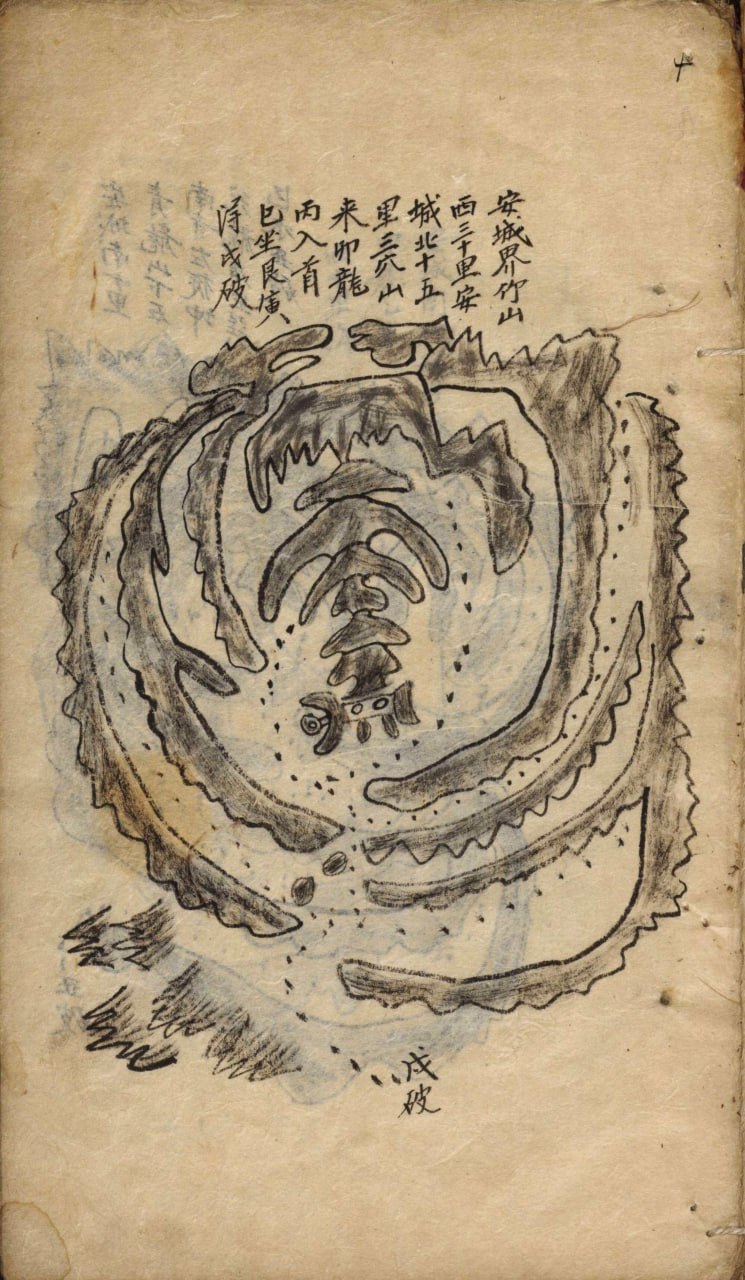 安城界竹山
西三十里安
城北十五
里三穴山
来卯龍
丙入首
巳坐艮寅
得戌破
戌破